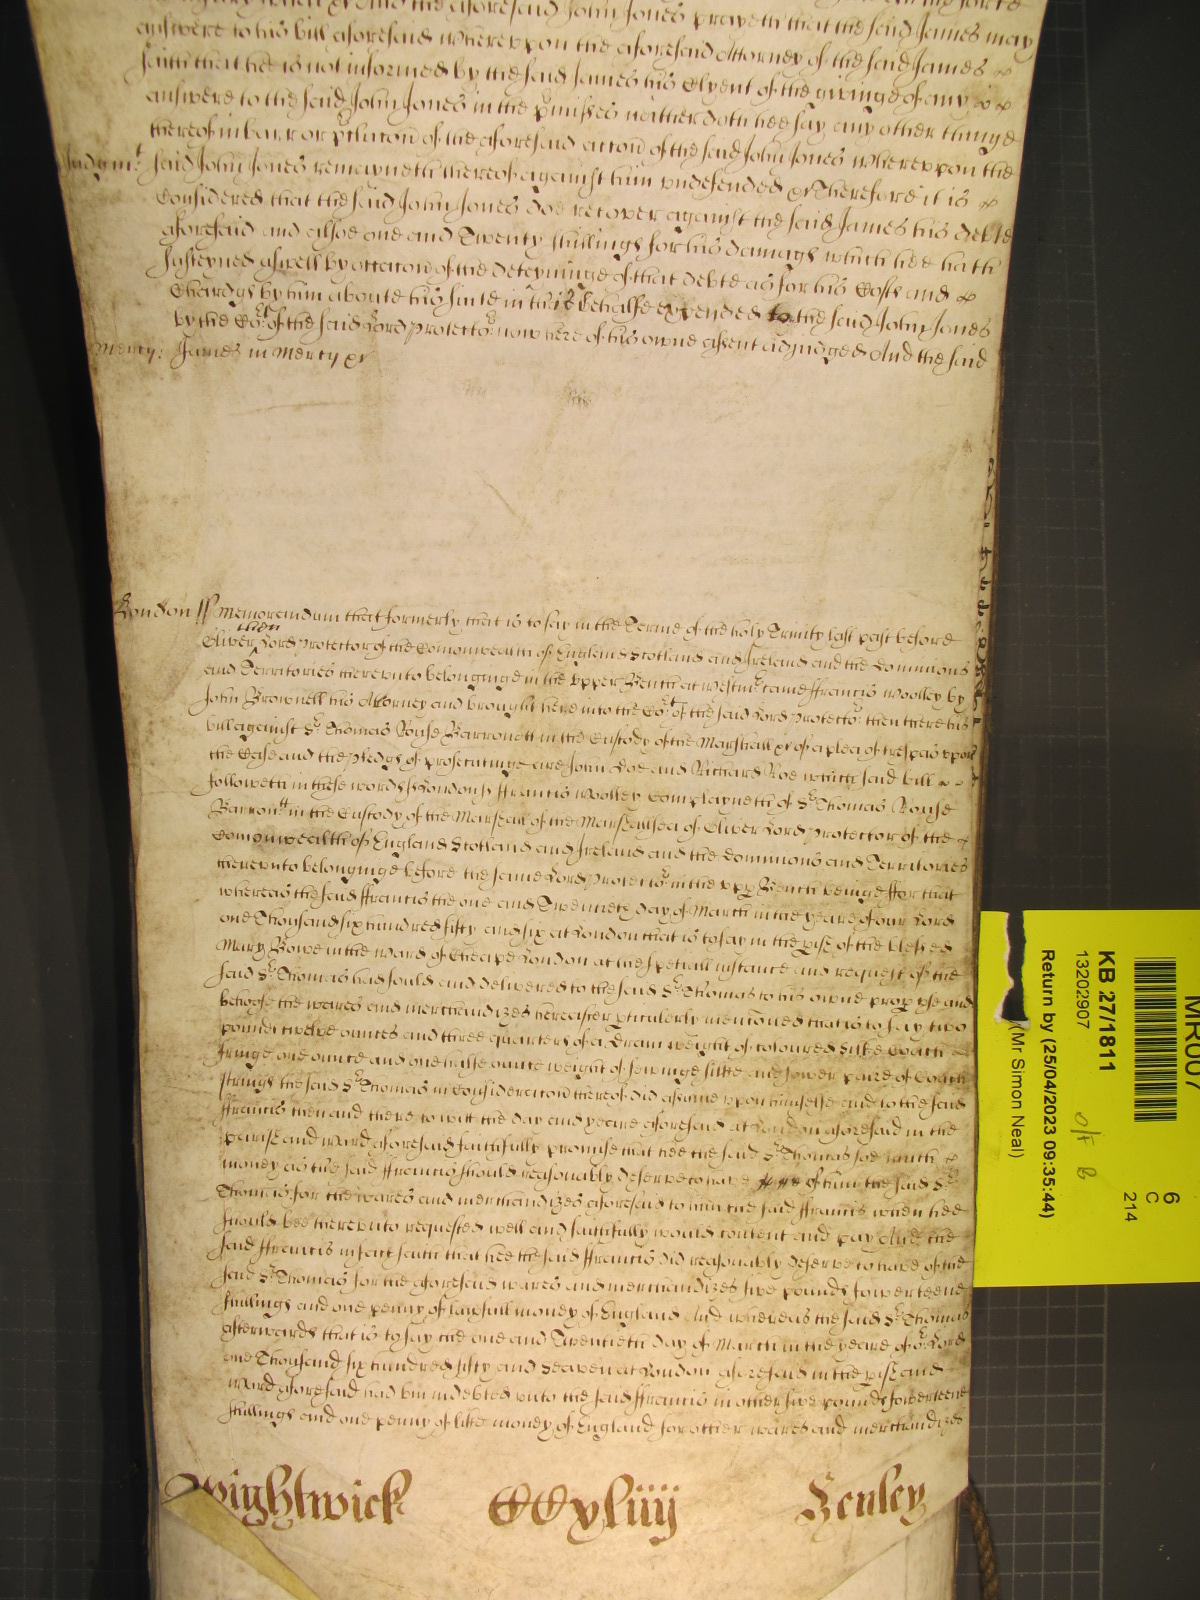 and the aforesaid John Jones prayeth that the said James may
answere to his bill aforesaid wherevpon the aforesaid Attorney of the said James
saith that he is not informed by the said James his Clyent of the givinge of any
answere to the said John Jones in the pmisses neither doth hee say any other thinge
thereof in barr or pclucon of the aforesaid accon of the said John Jones wherevpon the
Judgmt: said John Jones remayneth thereof against him vndefended &c Therefore it is
Considered that the said John Jones doe recover against the said James his debte
aforesaid and alsoe one and Twenty shillings for his damags which hee hath
susteyned aswell by occacon of the deteyninge of that debte as for his Costs and
Chardgs by him aboute his suite in that behalfe expended to the said John Jones
by the Cort of the said Lord Protector now here of his owne assent adjudged And the said
Mercy: James in Mercy &c
London ss Memorandum that formerly that is to say in the Terme of the holy Trinity last past before
Oliver then Lord Protector of the Comonwealth of England Scotland and Ireland and the Dominions
and Territories therevnto belonginge in the vpper Bench at Westmr came ffrancis Woolley by
John Brownell his Attorney and brought here into the Cort of the said Lord Protector then there his
bill against Sr Thomas Rouse Barronett in the Custody of the Marshall &c of a plea of trespas vpon
the Case and the pledgs of prosecutinge are John Doe and Richard Roe which said bill
followeth in these words ss London ss ffrancis Woolley Complayneth of Sr Thomas Rouse
Barrontt in the Custody of the Marshall of the Marshallsea of Oliver Lord Protector of the
Comonwealth of England Scotland and Ireland and the Dominions and Territories
therevnto belonginge before the same Lord Protector in the vpp Bench beinge ffor that
whereas the said ffrancis the one and Twentieth day of March in the yeare of our Lord
one Thousand six hundred fifty and six at London that is to say in the pish of the blessed
Mary Bowe in the Ward of Cheape London at the speciall instance and request of the
said Sr Thomas had sould and delivered to the said Sr Thomas to his owne prop vse and
behoofe the wares and merchandizes hereafter pticularly mencioned that is to say two
pound twelve ounces and three quarters of a dram weight of coloured silke Coach
fringe one ounce and one halfe ounce weight of sewinge silke and fower paire of Coach
strings the said Sr Thomas in Consideracon thereof did assume vpon himselfe and to the said
ffrancis then and there to witt the day and yeare aforesaid at London aforesaid in the
parish and ward aforesaid faithfully promise that hee the said Sr Thomas soe much
money as the said ffrancis should reasonably deserve to have of him the said Sr
Thomas for the wares and merchandizes aforesaid to him the said ffrancis when hee
should bee therevnto requested well and faithfully would content and pay And the
said ffrancis in fact saith that hee the said ffrancis did reasonably deserve to have of the
said Sr Thomas for the aforesaid wares and merchandizes five pounds fowerteene
shillings and one penny of lawfull money of England And whereas the said Sr Thomas
afterwards that is to say the one and Twentieth day of March in the yeare of or Lord
one Thousand six hundred fifty and seaven at London aforesaid in the pish and
ward aforesaid had bin indebted vnto the said ffrancis in other five pounds fowerteene
shillings and one penny of like money of England for other wares and merchandizes
Wightwick CCxliiij Henley
MR007
KB 27/1811
13202907
Return by (25/04/2023 09:35:44)
(Mr Simon Neal)
6
C
214